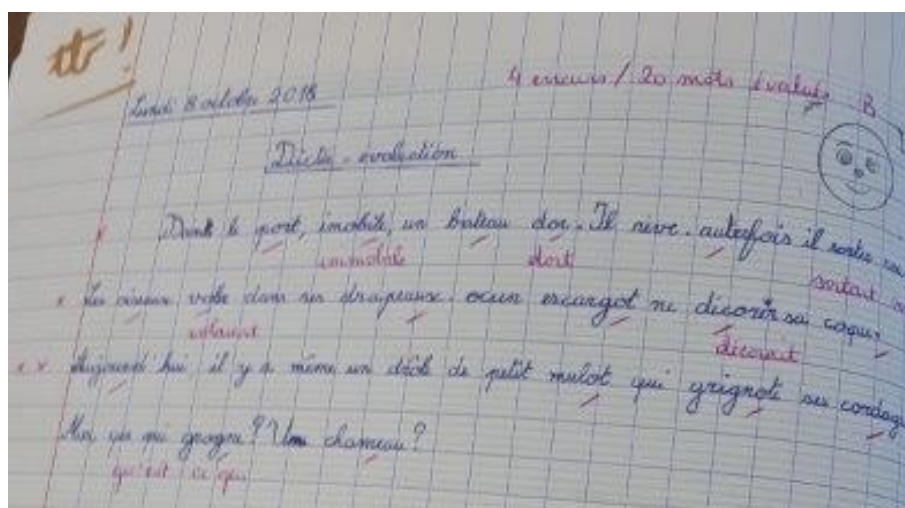 Lundi 8 octobre 2018
4 erreurs / 20 mots évalués B
Dictée - évaluation
Dans le port, imobile, un bateau dor. Il rève. auterfois il
immobile dort
sortait
Les oiseaux vole dans ses drapeaux. ocun escargot ne décorèr sa coque,
volaient
décorait
Aujourd hui il y a même un drôle de petit mulot qui grignote ses cordag
Mai qui grogne? Un chameau?
qu'est ce qui